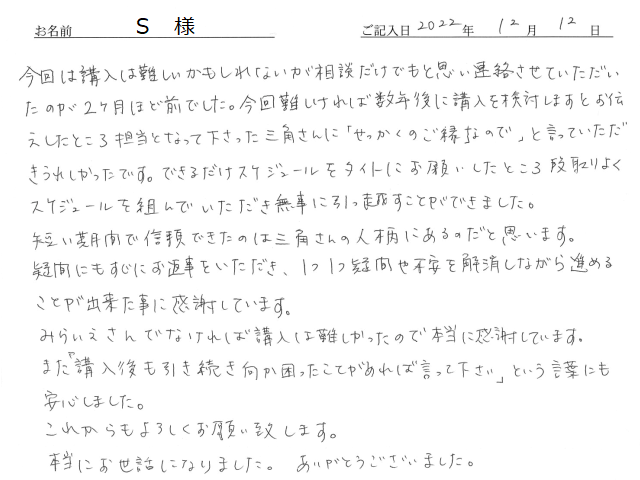 お名前 S 様 ご記入日 2022年 12月 12日
今回は講入は難しいかもしれないが相談だけでもと思い連絡させていただい
たのが2ヶ月ほど前でした。今回難しければ数年後に講入を検討しますとお伝
えしたところ担当となって下さった三角さんに「せっかくのご縁なので」と言っていただ
きうれしかったです。できるだけスケジュールをタイトにお願いしたところ段取りよく
スケジュールを組んでいただき無事に引っ越すことができました。
短い期間で信頼できたのは三角さんの人柄にあるのだと思います。
疑問にもすぐにお返事をいただき、1つ1つ疑問や不安を解消しながら進める
ことが出来た事に感謝しています。
みらいえさんでなければ講入は難しかったので本当に感謝しています。
また「講入後も引き続き何か困ったことがあれば言って下さい」という言葉にも
安心しました。
これからもよろしくお願い致します。
本当にお世話になりました。 ありがとうございました。